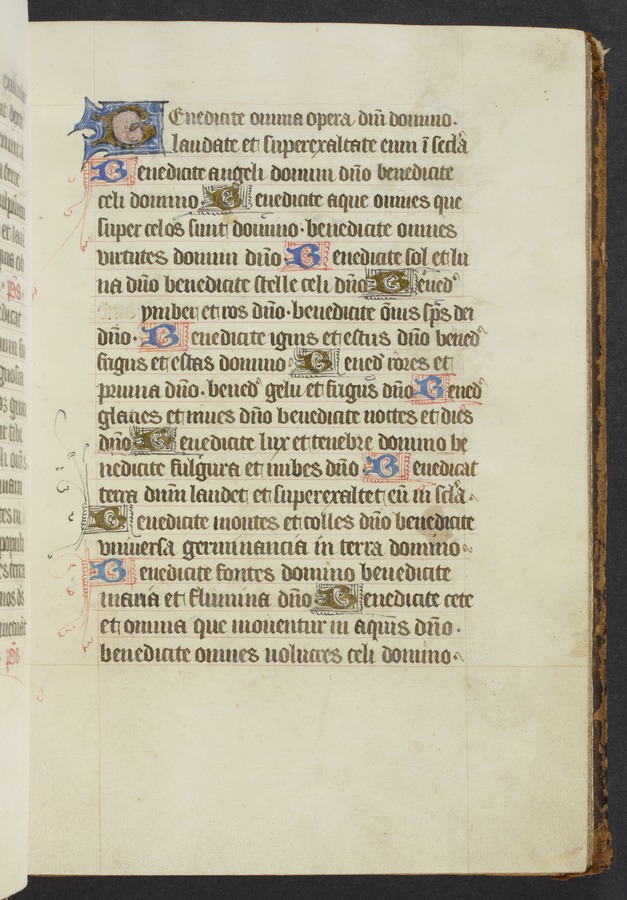 Benedicite omnia opera dñi domino.
laudate et superexaltate eum ĩ secľa
Benedicite angeli domini dño benedicite
celi domino Benedicite aque omnes que
super celos sunt domino. benedicite omnes
virtutes domini dño Benedicite sol et lu
na dño benedicite stelle celi dño Bened
ymber et ros dño. benedicite õnis sp̃s dei
dño. Benedicite ignis et estus dño bened
frigus et estas domino. Bened rores et
pruina dño. bened gelu et frigus dño Bened
glacies et niues dño benedicite noctes et dies
dño Benedicite lux et tenebre domino be
nedicite fulgura et nubes dño Benedicat
terra dnm̃ laudet et superexaltet eũ in secľa.
Benedicite montes et colles dño benedicite
vniuersa germinancia in terra domino
Benedicite fontes domino benedicite
maria et flumina dño Benedicite cete
et omnia que mouentur in aquis dño.
benedicite omnes uolucres celi domino.